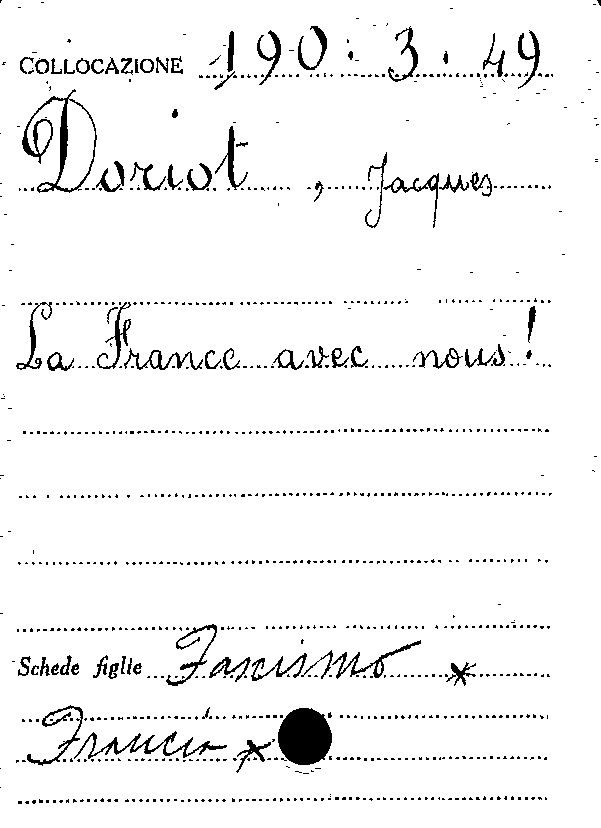 COLLOCAZIONE 190.3.49
Doriot, Jacques
La France avec nous!
Schede figlie Fascismo x
Francia x